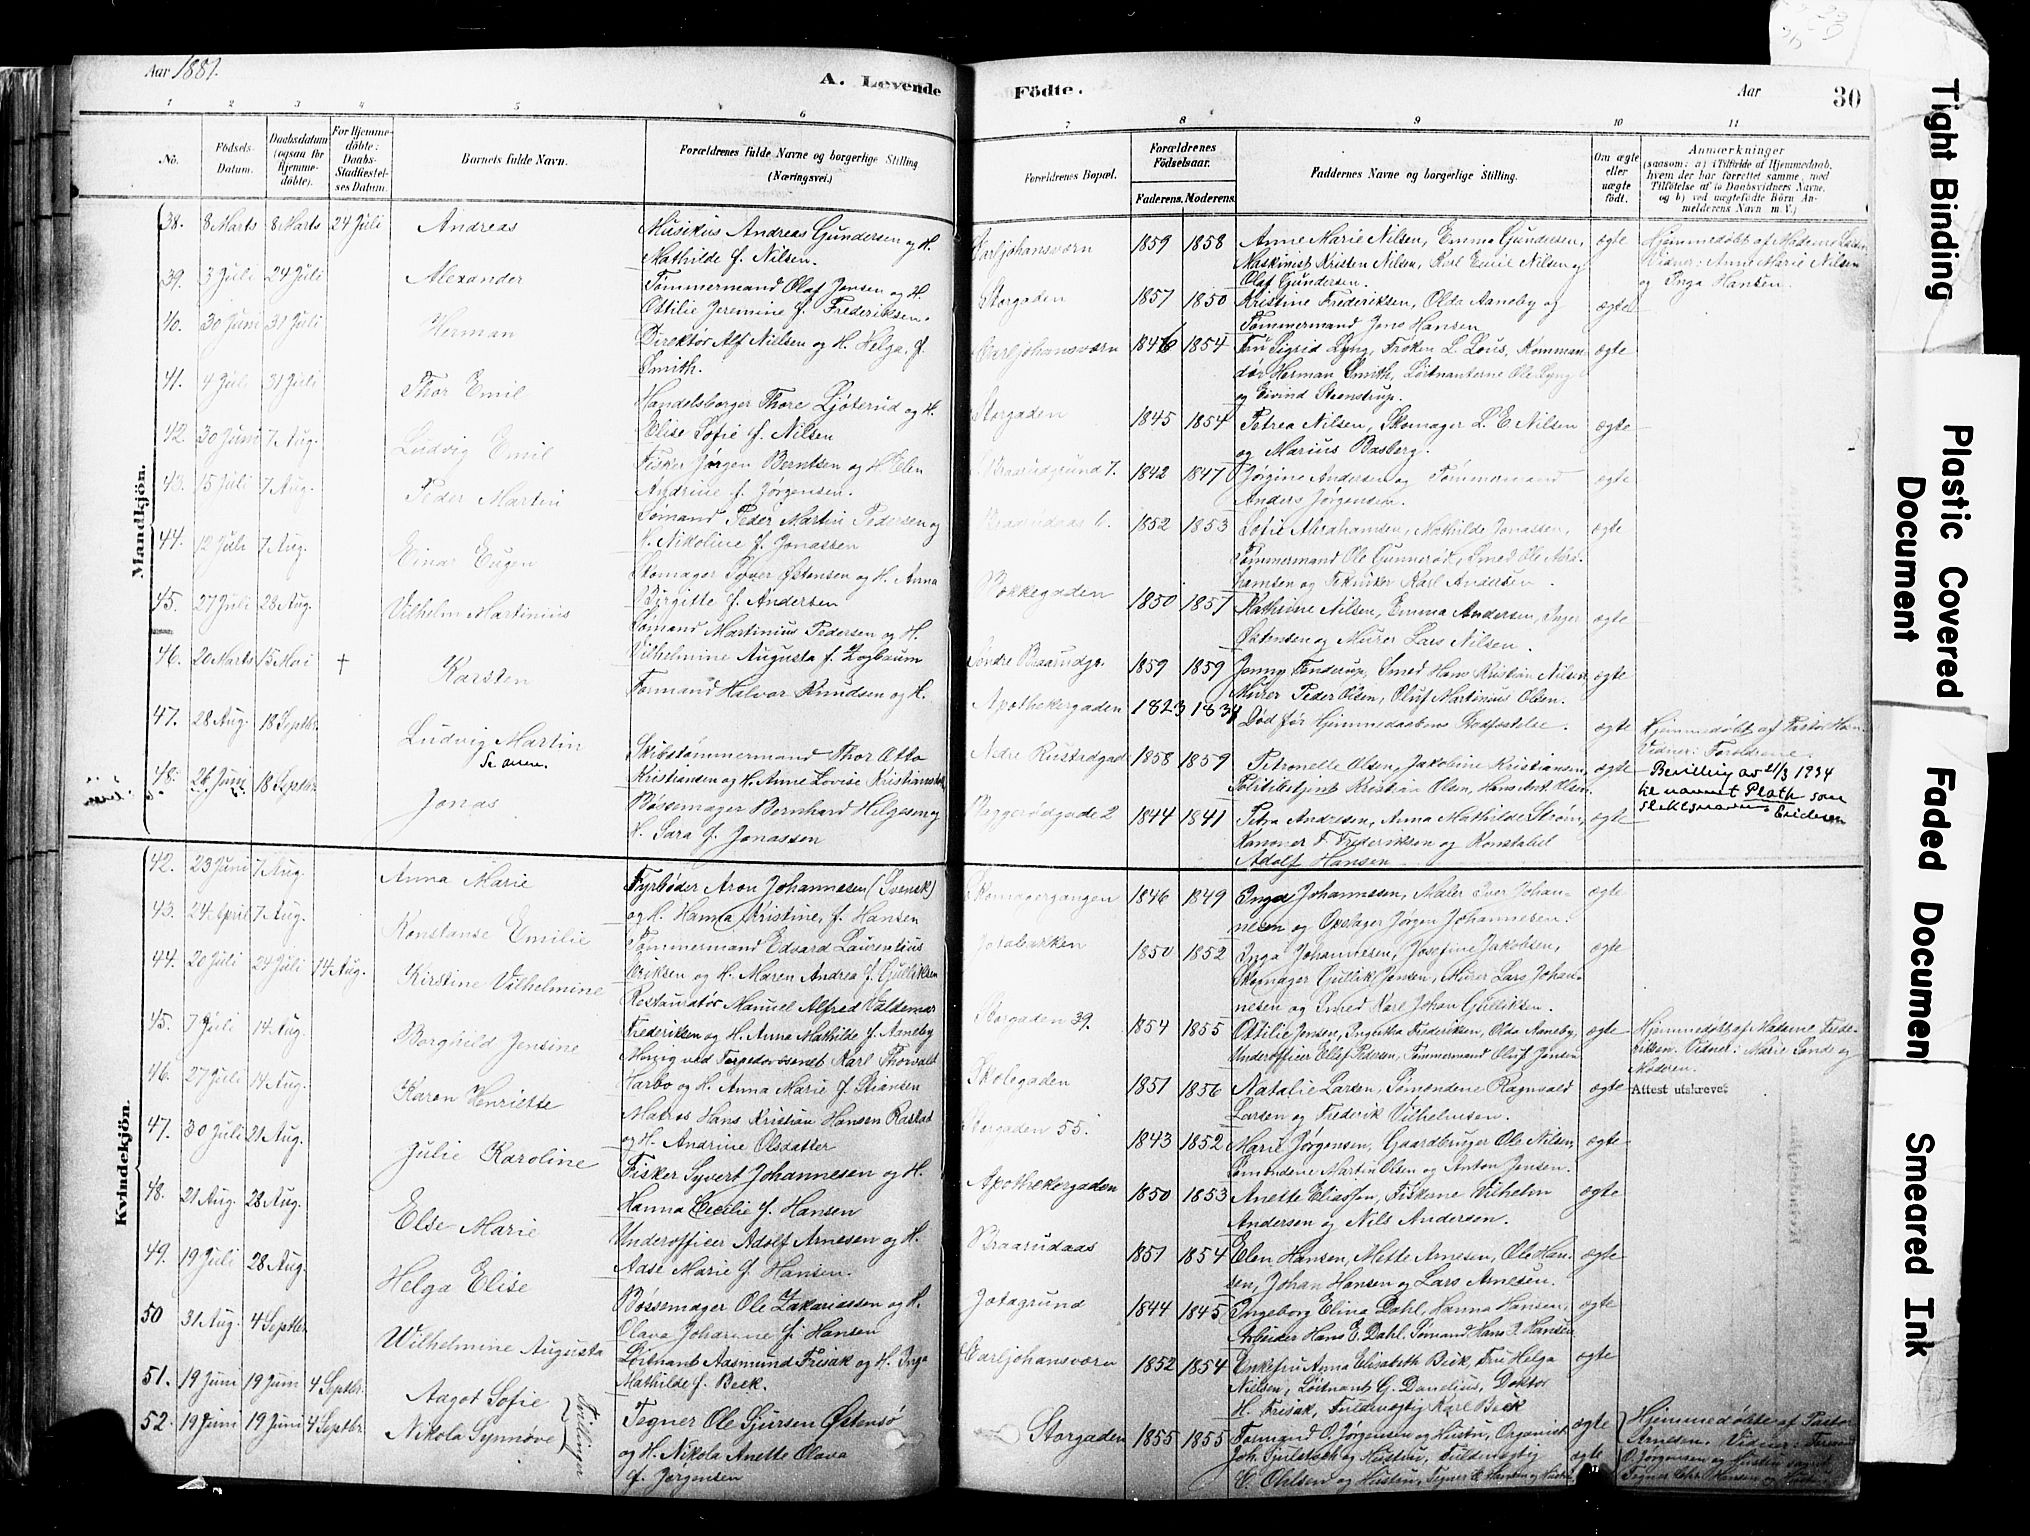 Aar 1881.
A. Levende
Födte.
Aar
30
1 2 3 4 5 6
7 8 9 10 11
No.
Fødsels-Datum.
Daabsdatum (ogsaa for Hjemme-døbte).
For Hjemme-døbte: Daabs-Stadfæstel-ses Datum.
Barnets fulde Navn.
Forældrenes fulde Navne og borgerlige Stilling (Næringsvei.)
Forældrenes Bopæl.
Forældrenes Fødselsaar.
Faderens. Moderens.
Faddernes Navne og borgerlige Stilling.
Om ægte eller uægte født.
Anmærkninger
(saasom: a) i Tilfælde af Hjemmedaab, hvem der har forrettet samme, med Tilføielse af to Daabsvidners Navne, og b) ved uægtefødte Børn An-melderens Navn m. V.)
Mandkjön.
38. 8 Marts 8 Marts 24 Juli Andreas
Musikus Andreas Gundersen og H.
Mathilde f. Nilsen.
Carljohansværn 1859 1858
Anne Marie Nilsen, Emma Gundersen,
Maskinist Kristen Nilsen, Karl Emil Nilsen og
Olaf Gundersen.
ægte
Hjemmedøbt af Madame
Vidner: Anne Marie Nilsen
og Inga Hansen.
39. 3 Juli 24 Juli Alexander
Tømmermand Olaf Jensen og H.
Ottilie Jeremine f. Frederiksen.
Storgaden 1857 1850
Kristine Frederiksen, Olda Aaneby og
Tømmermand Jens Hansen
ægte
40. 30 Juni 31 Juli Herman
Direktør Alf Nielsen og H. Helga f.
Smith.
Carljohansværn 1846 1854
Fru Sigrid Lyng, Frøken L. Lous, Komman-
dør Herman Smith, Løitnanterne Ole Lyng
og Eivind Steenstrup.
ægte
41. 4 Juli 31 Juli Thor Emil
Handelsborger Thore Ljøterud og H.
Elise Sofie f. Nilsen
Storgaden 1845 1854
Petrea Nilsen, Skomager L. E. Nilsen
og Marius Basberg.
ægte
42 30 Juni 7 Aug. Ludvig Emil
Fisker Jørgen Berntsen og H. Elen
Andrine f. Jørgensen.
Braarudgrund 7. 1842 1847
Jørgine Andersen og Tømmermand
Anders Jørgensen.
ægte
43. 15 Juli 7 Aug. Peder Martin
Sømand Peder Martin Pedersen og
H. Nikoline f. Jonassen
Braarudaas 6. 1852 1853
Sofie Abrahamsen, Mathilde Jonassen,
Tømmermand Ole Gunnerød, Smed Ole Abra-
hamsen og Tekniker Karl Andersen.
ægte
44. 12 Juli 7 Aug. Einar Eugen
Skomager Syver Østensen og H. Anna
Birgitte f. Andersen
Bakkegaden 1850 1857
Kathrine Nilsen, Emma Andersen, Inger
Østensen og Murer Lars Nilsen.
ægte
45. 27 Juli 28 Aug. Vilhelm Martinius
Sømand Martinius Pedersen og H.
Vilhelmine Augusta f. Zogbaum
Søndre Braarudgr. 1859 1859
Jenny Fenderup, Smed Hans Kristian Nilsen
Murer Peder Olsen, Oluf Martinius Olsen.
ægte
46. 20 Marts 15 Mai † Karsten
Formand Halvor Knudsen og H.
Apothekergaden 1823 1834
Død før Hjemmedaabens Stadfæstelse.
ægte
Hjemmedøbt af Pastor
Vidner: Forældrene.
47. 28 Aug. 18 Septbr. Ludvig Martin
Se anm.
Skibstømmermand Thor Otto
Kristiansen og H. Anne Lovise Kristiansen
Nedre Rustedgad 1858 1859
Petronelle Olsen, Jakobine Kristiansen,
Politibetjent Kristian Olsen, Hans Ant. Olsen.
ægte
Bevilling av 21/3 1934
til navnet Plath som
slektsnavn
48. 26 Juni 18 Septbr Jonas
Bøssemager Bernhard Helgesen og
H. Sara f. Jonassen
Baggerødgade 2 1844 1841
Petra Andresen, Anna Mathilde Strøm,
Kanoner F. Frederiksen og Konstabel
Adolf Hansen
ægte
Kvindekjön.
42. 23 Juni 7 Aug. Anna Marie
Fyrbøder Aron Johannesen (Svensk)
og H. Hanna Kristine, f. Hansen
Skomagergangen 1846 1849
Inga Johannessen, Maler Iver Johan-
nesen og Opslager Jørgen Johannesen.
ægte
43. 24 April 7 Aug. Konstanse Emilie
Tømmermand Edvard Laurentius
Eriksen og H. Maren Andrea f. Gulliksen
1850 1852
Inga Johannesen, Josefine Jakobsen,
Skomager Gullik Jensen, Murer Lars Johan-
nesen og Smed Karl Johan Gulliksen.
ægte
44. 20 Juli 24 Juli 14 Aug. Kirstine Vilhelmine
Restauratør Manuel Alfred Valdemar
Frederiksen og H. Anna Mathilde f. Aaneby
Storgaden 39. 1854 1855
Ottilie Jensen, Ingertha Frederiksen, Olda Aaneby,
Underofficer Ellef Pedersen, Tømmermand Oluf Jensen
ægte
Hjemmedøbt af Madame Frede-
riksen. Vidner: Marie Sande og
Moderen.
45. 7 Juli 14 Aug. Borghild Jensine
Menig ved Torpedovæsenet Karl Thorvald
Harbo og H. Anna Marie f. Stiansen
Skolegaden 1851 1856
Natalie Larsen, Sømændene Ragnvald
Larsen og Frederik Vilhelmsen.
ægte
Attest utskrevet
46. 27 Juli 14 Aug. Karen Henriette
Matros Hans Kristian Hansen Rastad
og H. Andrine Olsdatter
Storgaden 55. 1843 1852
Marie Jørgensen, Gaardbruger Ole Nilsen,
Sømændene Martin Olsen og Anton Jensen.
ægte
47. 30 Juli 21 Aug. Julie Karoline
Fisker Syvert Johannesen og H.
Hanna Cecilie f. Hansen
Apothekergaden 1850 1853
Anette Eliassen, Fiskerne Vilhelm
Andersen og Nils Andersen.
ægte
48. 21 Aug. 28 Aug. Else Marie
Underofficer Adolf Arnesen og H.
Aase Marie f. Hansen.
Braarudaas 1851 1854
Elen Hansen, Mette Arnesen, Ole Han-
sen, Johan Hansen og Lars Arnesen.
ægte
49. 19 Juli 28 Aug. Helga Elise
Bøssemager Ole Zakariassen og H.
Olava Johanne f. Hansen
Jotagrund 1844 1845
Ingeborg Elina Dahl, Hanna Hansen,
Arbeider Hans E. Dahl, Sømand Hans J. Hansen
ægte
50 31 Aug. 4 Septbr. Wilhelmine Augusta
Løitnant Aasmund Frisak og H. Inga
Mathilde f. Beck.
Carljohansværn 1852 1854
Enkefru Anna Elisabeth Beck, Fru Helga
Nielsen, Løitnant G. Danelius, Doktor
H. Frisak, Fuldmægtig Karl Beck
ægte
51. 19 Juni 19 Juni 4 Septbr. Aagot Sofie
52. 19 Juni 19 Juni 4 Septbr. Nikola Synnøve
Tvillinger
Tegner Ole Sjursen Østensø
og H. Nikola Anette Olava
f. Jørgensen
Storgaden 1855 1855
Formand O. Jørgensen og Hustru, Organist
Joh. og Hustru, Fuldmægtig
C. Ohlsen og Hustru, Tegner C. Hansen og Hustru
ægte
ægte
Hjemmedøbte af Pastor
Arnesen. Vidner: Formand
O. Jørgensen og Hustru samt
Tegner Chr. Hansen og Hustru
Tight Binding
Plastic Covered Document
Faded Documen
Smeared Ink